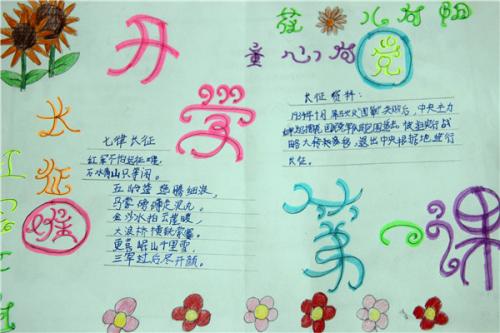 花儿向阳
童心向党
开
学
第
一
课
长
征
七律长征
红军不怕远征难，
万水千山只等闲。
五岭逶迤腾细浪，
乌蒙磅礴走泥丸。
金沙水拍云崖暖，
大渡桥横铁索寒。
更喜岷山千里雪，
三军过后尽开颜。
长征资料：
1934年10月第五次反"围剿"失败后，中央主力
国民党军队的包围追击，被迫实行战
略大转移，退出中央根据地进行
长征。